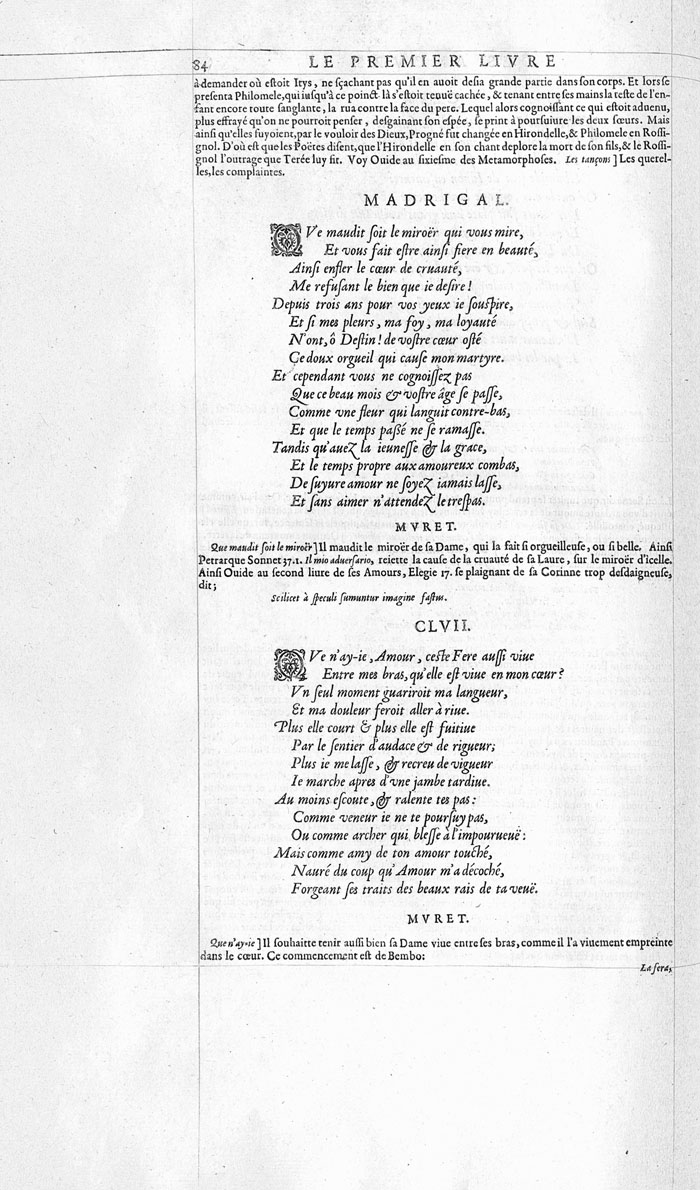 84 LE PREMIER LIVRE
à demander où eſtoit Itys, ne ſçachant pas qu'il en auoit deſia grande partie dans ſon corps. Et lors ſe
preſenta Philomele, qui iuſqu'à ce poinct là s'eſtoit tenuë cachée, & tenant entre ſes mains la teſte de l'en-
fant encore toute ſanglante, la rua contre la face du pere. Lequel alors cognoiſſant ce qui eſtoit aduenu,
plus effrayé qu'on ne pourroit penſer, deſgainant ſon eſpée, ſe print à pourſuiure les deux ſœurs. Mais
ainſi qu'elles fuyoient, par le vouloir des Dieux, Progné fut changée en Hirondelle, & Philomele en Roſſi-
gnol. D'où eſt que les Poëtes diſent, que l'Hirondelle en ſon chant deplore la mort de ſon fils, & le Roſſi-
gnol l'outrage que Terée luy fit. Voy Ouide au ſixieſme des Metamorphoſes. Les tançons ] Les querel-
les, les complaintes.
MADRIGAL.
QVe maudit ſoit le miroër qui vous mire,
Et vous fait eſtre ainſi fiere en beauté,
Ainſi enfler le cœur de cruauté,
Me refuſant le bien que ie deſire !
Depuis trois ans pour vos yeux ie ſouſpire,
Et ſi mes pleurs, ma foy, ma loyauté
N'ont, ô Deſtin ! de voſtre cœur oſté
Ce doux orgueil qui cauſe mon martyre.
Et cependant vous ne cognoiſſez pas
Que ce beau mois & voſtre âge ſe paſſe,
Comme vne fleur qui languit contre-bas,
Et que le temps paßé ne ſe ramaſſe.
Tandis qu'auez la ieuneſſe & la grace,
Et le temps propre aux amoureux combas,
De ſuyure amour ne ſoyez iamais laſſe,
Et ſans aimer n'attendez le treſpas.
MVRET.
Que maudit ſoit le miroër ] Il maudit le miroër de ſa Dame, qui la fait ſi orgueilleuſe, ou ſi belle. Ainſi
Petrarque Sonnet 37.1. Il mio aduerſario, reiette la cauſe de la cruauté de ſa Laure, ſur le miroër d'icelle.
Ainſi Ouide au ſecond liure de ſes Amours, Elegie 17. ſe plaignant de ſa Corinne trop deſdaigneuſe,
dit;
Scilicet à ſpeculi ſumuntur imagine faſtus.
CLVII.
QVe n'ay-ie, Amour, ceſte Fere auſſi viue
Entre mes bras, qu'elle eſt viue en mon cœur ?
Vn ſeul moment guariroit ma langueur,
Et ma douleur feroit aller à riue.
Plus elle court & plus elle eſt fuitiue
Par le ſentier d'audace & de rigueur;
Plus ie me laſſe, & recreu de vigueur
Ie marche apres d'vne jambe tardiue.
Au moins eſcoute, & ralente tes pas :
Comme veneur ie ne te pourſuy pas,
Ou comme archer qui bleſſe à l'impourueuë :
Mais comme amy de ton amour touché,
Nauré du coup qu'Amour m'a décoché,
Forgeant ſes traits des beaux rais de ta veuë.
MVRET.
Que n'ay-ie ] Il ſouhaitte tenir auſſi bien ſa Dame viue entre ſes bras, comme il l'a viuement empreinte
dans le cœur. Ce commencement eſt de Bembo:
La fera,